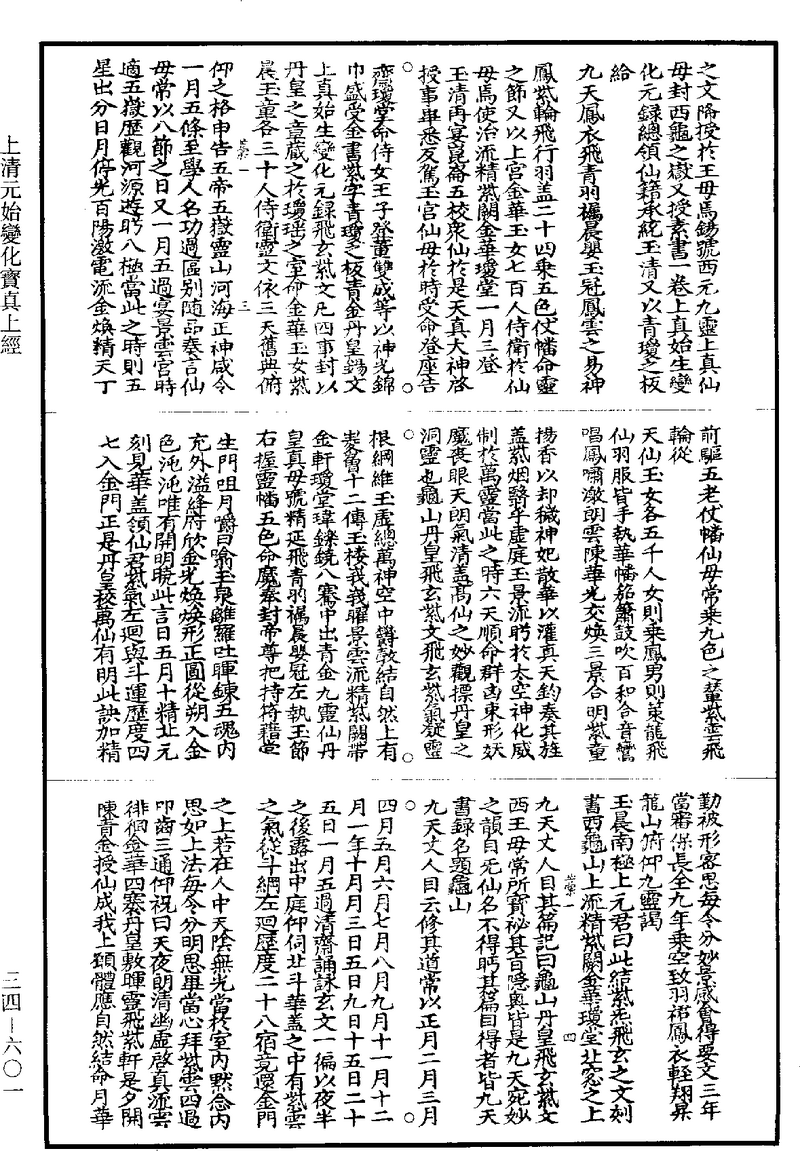 之文降授於王母焉錫號西元九靈上真仙
母封西龜之嶽又授素書一卷上真始生變
化元録總領仙籍承統玉清又以青瓊之板
給
九天鳳衣飛青羽襦晨嬰玉冠鳳雲之舄神
鳳紫輪飛行羽蓋二十四乘五色仗幡命靈
之節又以上宮金華玉女七百人侍衛於仙
母焉使治流精紫闕金華瓊堂一月三登
玉清再宴崑崙五校衆仙於是天真大神啓
授事畢悉反駕玉宮仙母於時受命登座告
齋瓊掌命侍女王子登董雙成等以神光錦
巾盛受金書紫字青瓊之板青金丹皇錫文
上真始生變化元録飛玄紫文凡四事封以
丹皇之章蔵之於瓊瑶之室命金華玉女紫
晨玉童各三十人侍衛靈文依三天舊典俯
仰之格申告五帝五嶽靈山河海正神咸令
一月五條至學人名功過區别随品奏言仙
母常以八節之日又一月五過宴景雲宮時
適五嶽歷觀河源遊眄八極當此之時則五
星出分日月停光百陽激電流金煥精天丁
前驅五老仗幡仙母常乘九色之輦紫雲飛
輪從
天仙玉女各五千人女則乘鳳男則策龍飛
仙羽服皆手執華幡笳簫鼓吹百和合音鸞
唱鳳嘯激朗雲陳華光交煥三景合明紫童
揚香以却穢神妃散華以灌真天鈞奏其旌
蓋紫烟翳乎虛庭玉景流眄於太空神化威
制於萬靈當此之時六天順命群凶束形妖
魔喪眼天朗氣清蓋髙仙之妙觀摽丹皇之
洞靈也龜山丹皇飛玄紫文飛玄紫氣凝靈
根綱維玉虛總萬神空中欝敷結自然上有
婁魯十二傳玉楼峩峩曜景雲流精紫闕帶
金軒瓊堂瑋鑠鏡八騫中出青金九靈仙丹
皇真母號精延飛青羽襦晨嬰冠左執玉節
右握靈幡五色命魔奏封帝尊把持符籍崇
生門咀月嚼日喻玉泉離羅吐暉鍊五魂内
充外溢絳府欣金光煥煥形正圓從朔入金
色沌沌唯有開明曉此言日五月十精北元
刻見華盖領仙君紫氣左迴與斗運歷度四
七入金門正是丹皇校萬仙有明此訣加精
勤被形審思每令分妙景感會得要文三年
當審保長全九年乘空致羽裙鳳衣輕翔昇
龍山俯仰九靈謁
玉晨南極上元君曰此結紫炁飛玄之文刻
書西龜山上流精紫闕金華瓊堂北窓之上
九天丈人目其篇記曰龜山丹皇飛玄紫文
西王母常所寳祕其旨隠奥皆是九天宛妙
之韻自无仙名不得眄其篇目得者皆九天
書録名題龜山
九天丈人目云修其道常以正月二月三月
四月五月六月七月八月九月十一月十二
月一年十月月三日五日九日十五日二十
五日一月五過清齋誦詠玄文一徧以夜半
之後露出中庭仰伺北斗華盖之中有紫雲
之氣從斗綱左迴歷度二十八宿竟還金門
之上若在人中天陰無光當於室内黙念内
思如上法每令分明思畢當心拜紫雲四過
叩齒三通仰祝曰天夜朗清幽虛啓真流雲
徘徊金華四塞丹皇敷暉靈飛紫軒是夕開
陳青金授仙成我上頚體應自然結命月華
上清元始變化寳真上經
三四—六〇一